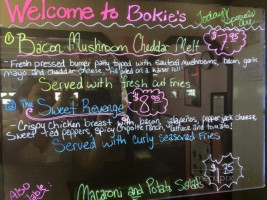 Welcome to Bokie's
Today's
Specials
are
① Bacon Mushroom Cheddar Melt
- Fresh pressed burger patty topped with sauteed mushrooms, bacon, garlic
mayo and cheddar cheese, on a kaiser roll
Served with fresh cut fries
② The Sweet Revenge
- Crispy Chicken breast with bacon, jalapeños, pepper jack cheese,
Sweet red peppers, spicy chipotle ranch, lettuce and tomato!
Served with curly seasoned fries
Also
Macaroni and Potato Salads